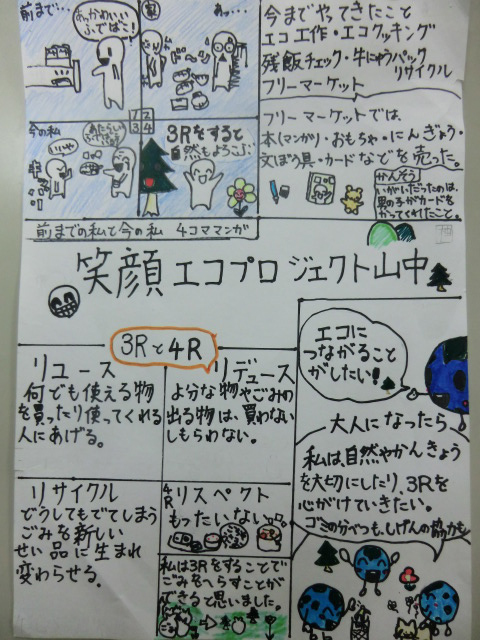 前まで…
あっかわいい
ふでばこ!
家
あっ…
1 2
3 4
今の私
いいや
あたらしい
3Rをすると
自然もよろこぶ
前までの私と今の私 4コママンガ
今までやってきたこと
エコ工作・エコクッキング
残飯チェック・牛にゅうパック
リサイクル
フリーマーケット
フリーマーケットでは、
本(マンガ)・おもちゃ・にんぎょう・
文ぼう具・カードなどを売った。
かんそう
いがいだったのは、
男の子がカードを
かってくれたこと。
笑顔エコプロジェクト山中
3Rと4R
リユース
何でも使える物
を買ったり使ってくれる
人にあげる。
リデュース
よぶんな物やごみの
出る物は、買わない
しもらわない。
リサイクル
どうしてもでてしまう
ごみを新しい
せい品に生まれ
変わらせる。
4R リスペクト
もったいない。
私は3Rをすることで
ごみをへらすことが
できると思いました。
エコに
つながること
がしたい!
大人になったら、
私は、自然やかんきょう
を大切にしたり、3Rを
心がけていきたい。
ゴミの分べつも、しげんの協力も